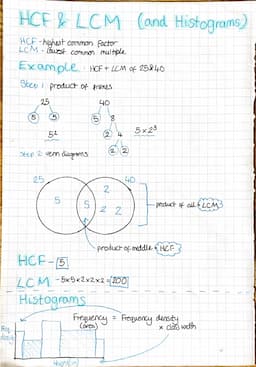 HCF & LCM (and Histograms)
HCF - highest common factor
LCM - lowest common multiple
Example: HCF + LCM of 25 & 40
Step 1: product of primes
25 40
5 5 5 8
2 4
2 2
5² 5 x 2³
Step 2: venn diagrams
25 40
5 5 2 2 2
product of all = LCM
product of middle = HCF
HCF - 5
LCM - 5x5x2x2x2 = 200
Histograms
Frequency = Frequency density
(area) x class width
Freq